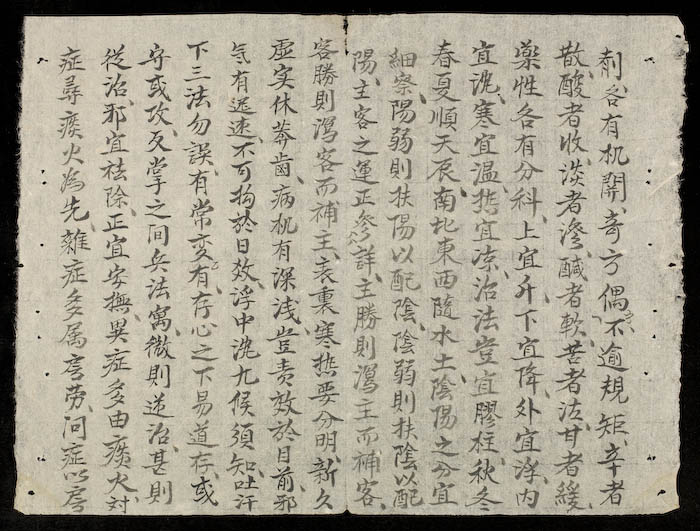 剤各有机関奇方偶不逾規矩辛者
散酸者收淡者滲醎者軟苦者沽甘者緩
薬性各有分科上宜升下宜降外宜浮内
宜沈寒宜温热宜凉治法豈宜膠柱秋冬
春夏順天辰南北東西隨水土陰陽之分宜
細察陽弱則扶陽以配陰陰弱則扶陰以配
陽主客之運正参詳主勝則瀉主而補客
客勝則瀉客而補主表裏寒热要分明新久
虚实休莽歯病机有深浅豈責效於目前邪
気有迟速不可拘於日效浮中沈九候須知吐汗
下三法勿誤有常变有存心之下易道存或
守或攻反掌之间兵法寓微則逆治甚則
從治邪宜祛除正宜安撫異症多由痰火対
症尋痰火為先雜症多属虚劳问症以房